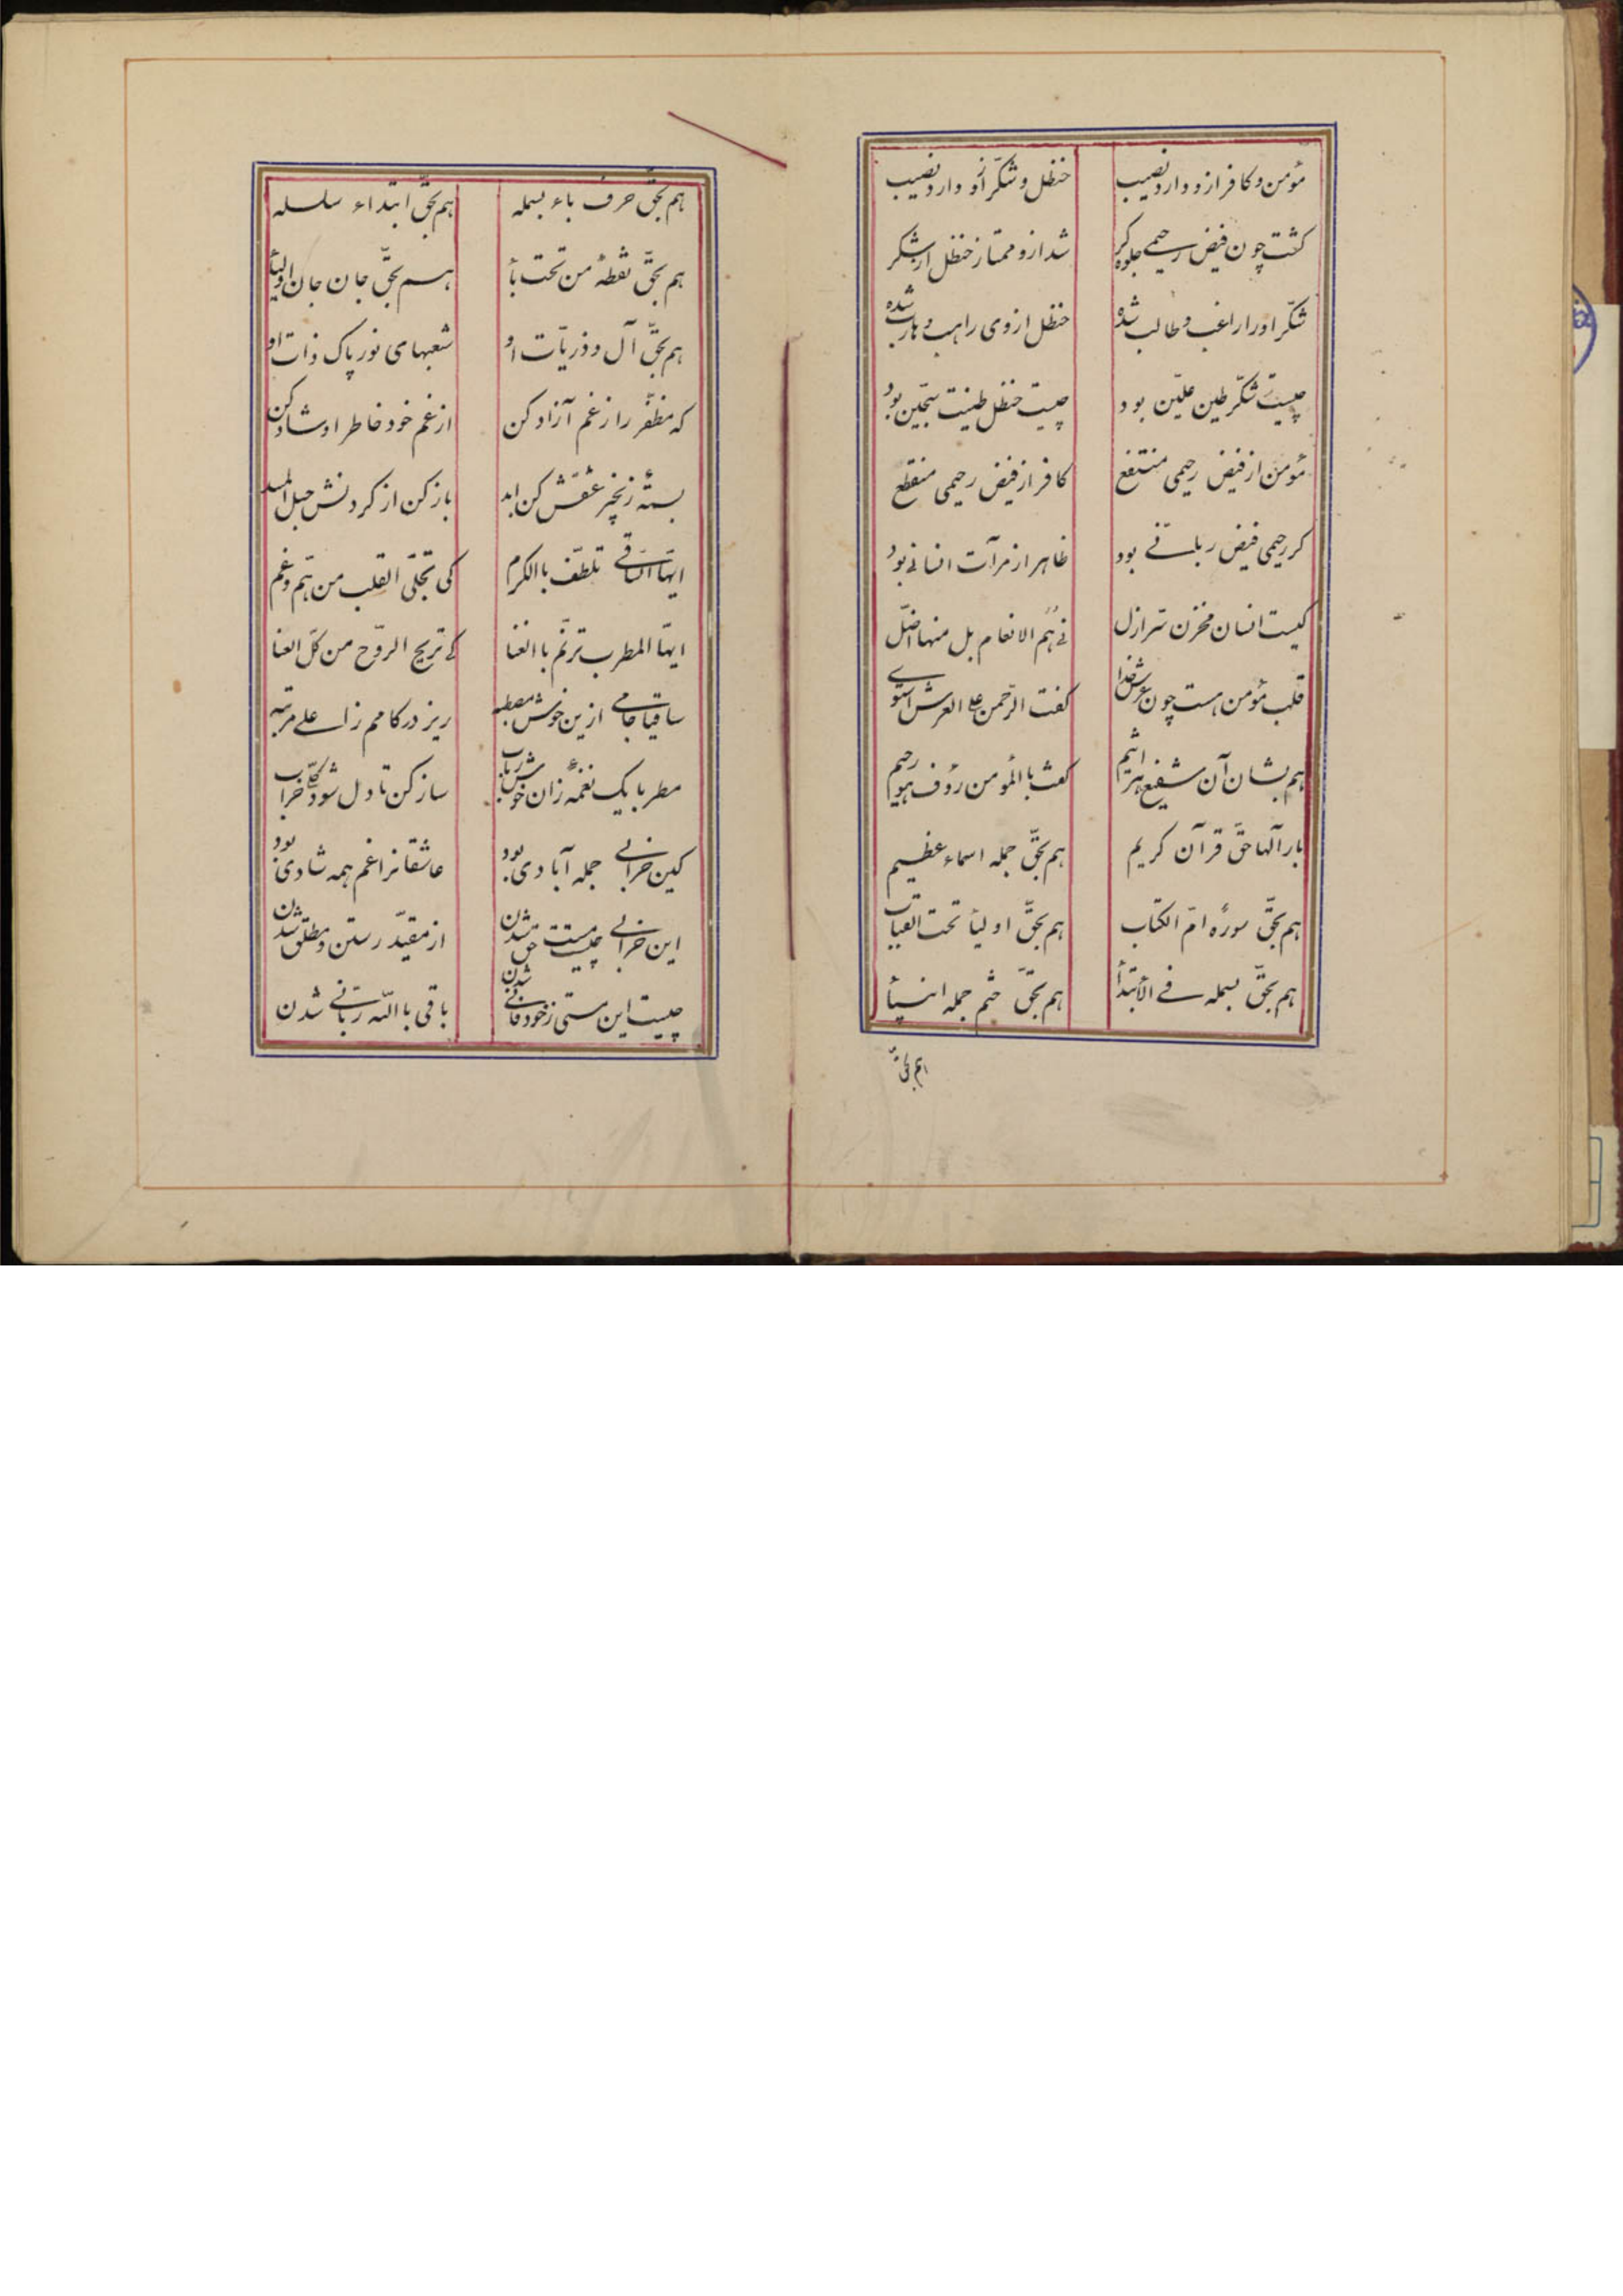 مؤمن و کافر ازو دارد نصیب
حنظل و شکّر ازو دارد نصیب
کشت چون فیض رحیمی جلوه کر
شد ازو ممتاز حنظل از شکر
شکّر او را راغب و طالب شده
حنظل از وی راهب و هارب شده
چیست شکّر طین علیّین بود
چیست حنظل طینت سجّین بود
مؤمن از فیض رحیمی منتفع
کافر از فیض رحیمی منقطع
کر رحیمی فیض ربانّے بود
ظاهر از مرآت انسانے بود
کیست انسان مخزن سرّ ازل
نے هُم الانعام بل منها اضلّ
قلب مؤمن هست چون عرش خدا
کفت الرّحمن علے العرش استوے
هم بشان آن شفیع هر اثیم
کفت با المؤمن رؤف هو رحیم
بار آلها حقّ قرآن کریم
هم بحقّ جمله اسماء عظیم
هم بحقّ سورهٔ امّ الکتاب
هم بحقّ اولیأ تحت القباب
هم بحقّ بسمله فے الأبتدأ
هم بحقّ ختم جمله انبیأ
هم بحقّ
هم بحقّ حرف باء بسمله
هم بحقّ ابتداء سلسله
هم بحقّ نقطهٔ من تحت بأ
هم بحقّ جان جان اولیأ
هم بحقّ آل و ذریّات او
شعبهای نور پاک ذات او
که مظفّر را ز غم آزاد کن
از غم خود خاطر او شاد کن
بستهٔ زنجیر عشقش کن ابد
باز کن از کردنش حبل المسد
ایّها السّاقے تلطّف با الکرم
کی تجلّی القلب من همّ و غم
ایّها المطرب ترنّم با الغنا
کے تریح الرّوح من کلّ العنا
ساقیا جامے ازین خوش مصطبه
ریز در کامم ز اعلے مرتبه
مطربا یک نغمهٔ زان خوش رباب
ساز کن تا دل شود کلّی خراب
کین خرابے جمله آبادی بود
عاشقانرا غم همه شادی بود
این خرابے چیست مست حق شدن
از مقیّد رستن و مطلق شدن
چیست این مستی ز خود فانے شدن
باقی با اللّه ربّانے شدن